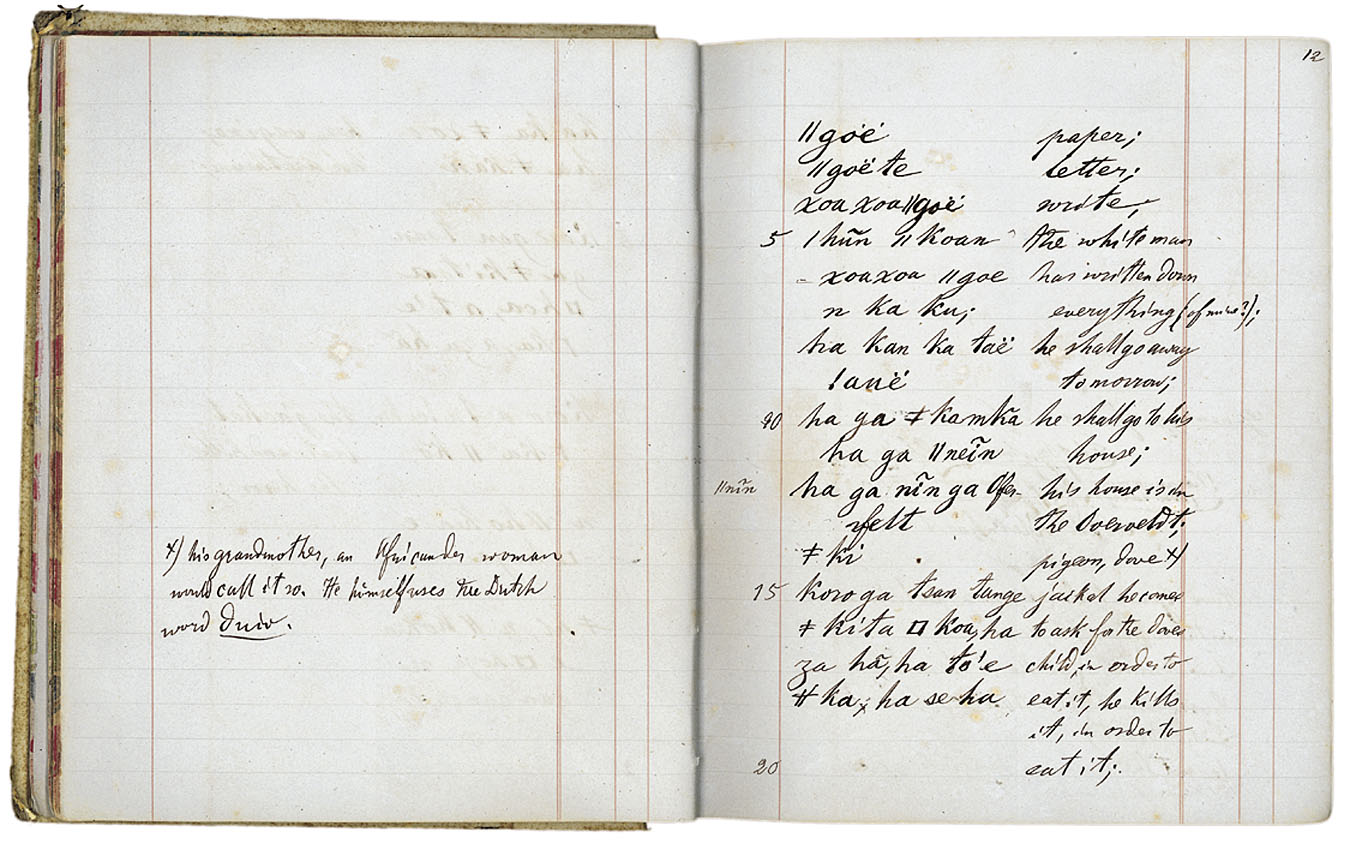 x) his grandmother, an Africander woman
would call it so. He himself uses the Dutch
word duiv.
12
ǁgoë paper;
ǁgoë te letter;
xoa xoa ǁgoë write,
5 ǀhũn ǁkoan the white man
- xoaxoa ǁgoe has written down
n ka ku; everything (of mine?);
ha kan ka taë he shall go away
ǃauë tomorrow;
10 ha ga ǂkamka he shall go to his
ha ga ǁneĩn house;
ǁnĩn ha ga nĩn ga Ofer- his house is in
velt the Overveldt;
ǂki pigeon, dove x)
15 Koro ga tsan tange jackal he comes
ǂkita ◻ koa, ha to ask for the doves
za hã, ha to'e child, in order to
ǂka; ha se ha eat it, he kills
it, in order to
20 eat it;